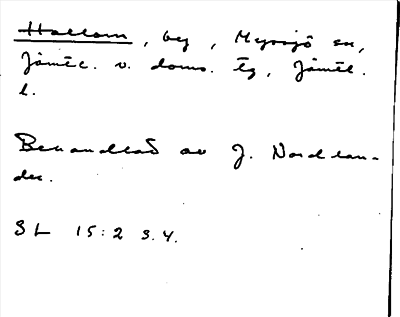 Hallom, by, Myssjö sn,
Jämtl. v. doms. tg, Jämtl.
l.
Behandlad av J. Nordlan-
der.
SL 15:2 s.4.